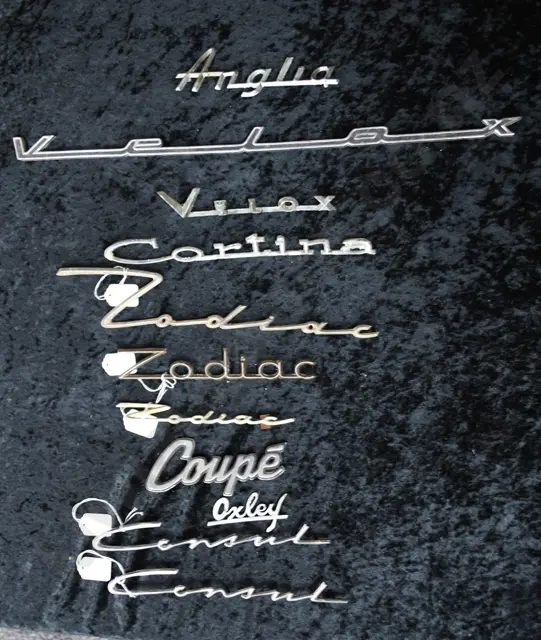 Anglia
Velox
Velox
Cortina
Zodiac
Zodiac
Zodiac
Coupé
Oxley
Consul
Consul